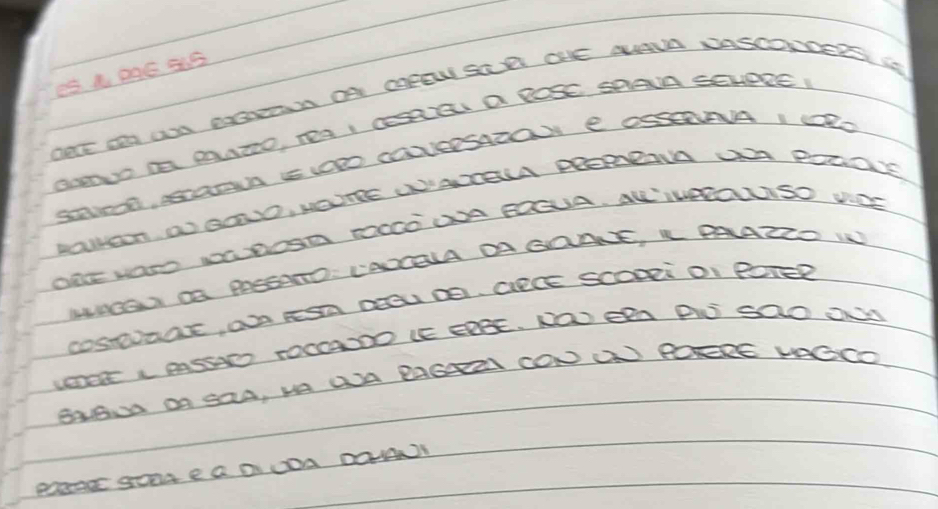 ES 1 PAG 515
CIRCE ERA UNA RAGAZZINA DAI CAPELLI SCURI CHE AMAVA NASCONDERSI NEL
GIARDINO DEL PALAZZO, TRA I CESPUGLI DI ROSE SPIAVA SEMPRE I
SERVITORI, ASCOLTAVA LE LORO CONVERSAZIONI E OSSERVAVA I LORO
UN GIORNO, MENTRE UN'ANCELLA PREPARAVA UNA POZIONE,
CIRCE MOLTO INCURIOSITA TOCCÒ UNA FOGLIA. ALL'IMPROVVISO VIDE
IMMAGINI DEL PASSATO: L'ANCELLA DA GIOVANE, IL PALAZZO IN
COSTRUZIONE, UNA FESTA DEGLI DEI. CIRCE SCOPRÌ DI POTER
VEDERE IL PASSATO TOCCANDO LE ERBE. NON ERA PIÙ SOLO UNA
BAMBINA DA SOLA, MA UNA RAGAZZA CON UN POTERE MAGICO.
PORTARE STORIA E DOMANI